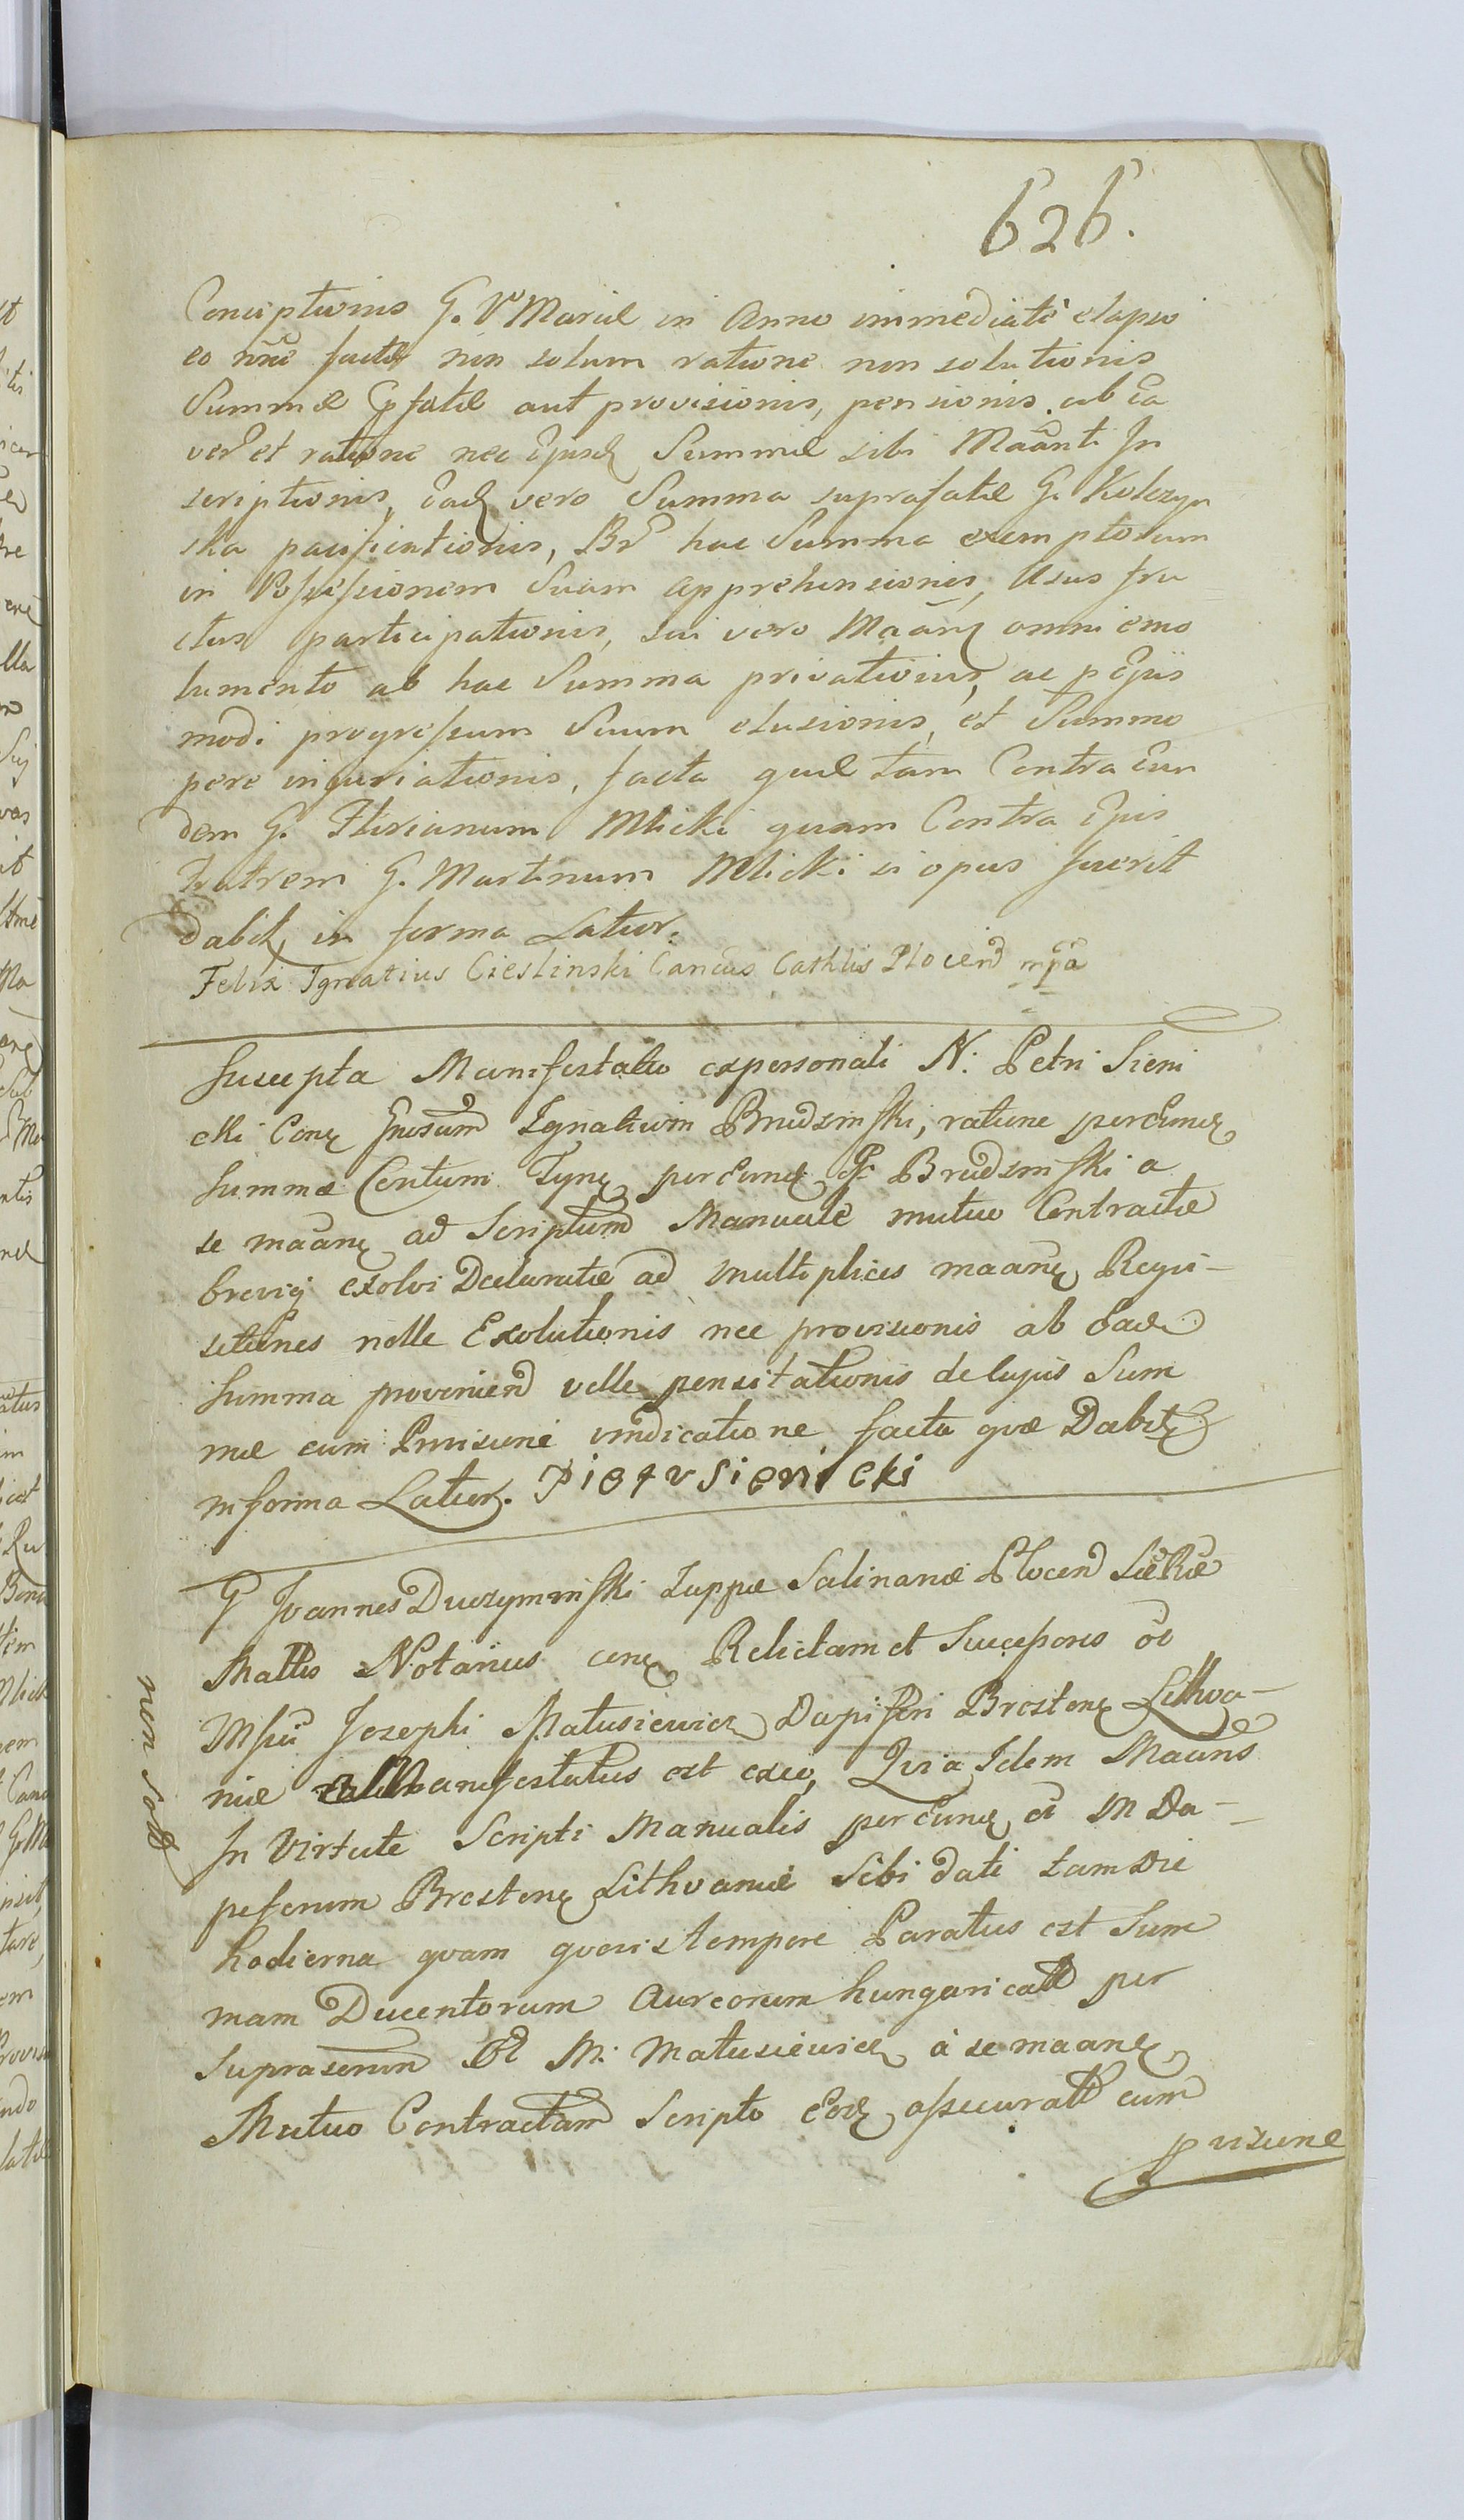 626.
Conceptionis G. V. Mariæ in Anno immediatè elapso
eo nñe factæ non solum ratione non solutionis
Summæ pfatæ aut provisionis, pensionis ab Ea
ver et ratione nec Ejusd Summæ sibi Maãnti In
scriptionis, Ead vero Summa suprafatæ G. Kolczyn
ska pacificationis, Br hac Summa exemptorum
in Possessionem Suam apprehensionis, Usus fru
ctus participationis, sui vero Maãnt omni emo
lumento ab hac Summa privationis, ac p Ejus
modi progressum Suum elusionis, et Summo
pere injuriationis, facta quæ tam Contra Eun
dem G. Florianum Mlicki quam Contra Ejus
Fratrem G. Martinum Mlicki si opus fuerit
Dabit, in forma Latior.
Felix Ignatius Cieslinski Cancus Cathlis Plocen mpa
Suscepta Manifestatio expersonali N. Petri Sieni
cki Con Gnosum Ignatium Brudzinski, ratione per Eund
Summæ Centum Tyn per Eund G. Brudzinski a
se maãn ad Scriptum Manuale mutuo Contractæ
brevig exolvi Declaratæ ad multiplices maãn Requi-
sitiones nolle Exolutionis nec provisionis ab Ead
Summa provenien velle pensitationis de lujus Sum
mæ cum Provisione vindicatione facta quæ Dabit
in forma Latior. Piotr Sienicki
G Joannes Duczyminski Zuppæ Salinariæ Plocen SæRæ
Mattis Notarius con Relictam et Successores ol
Msii Josephi Matusiewicz Dapiferi Bresten Lithva-
niæ manifestatus est exeo, Quia Idem Maãns
In Virtute Scripti Manualis per Eund ol M Da-
piferum Bresten Lithvaniæ Sibi dati tam die
hodierna quam quovis tempore Paratus est Sum
mam Ducentorum Aureorum hungarical per
suprascrum Ol M. Matusiewicz à se maãn
Mutuo Contractam Scripto Eod assecurat cum
pvisione
non sol